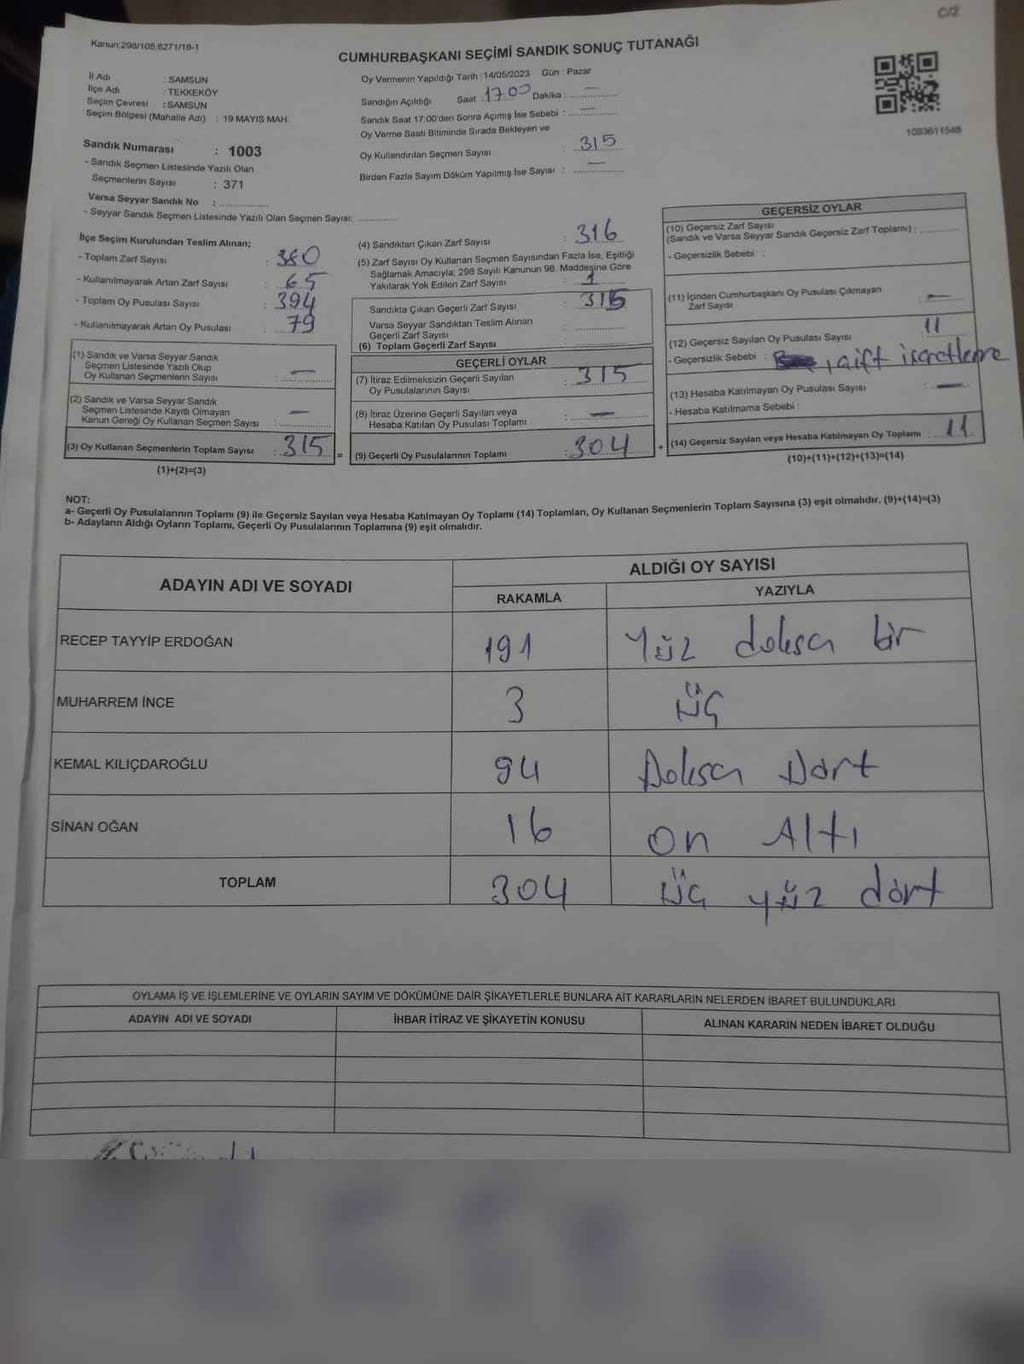 C/2
Kanun:298/105,6271/18-1
CUMHURBAŞKANI SEÇİMİ SANDIK SONUÇ TUTANAĞI
İl Adı : SAMSUN
İlçe Adı : TEKKEKÖY
Seçim Çevresi : SAMSUN
Seçim Bölgesi (Mahalle Adı) : 19 MAYIS MAH.
Oy Vermenin Yapıldığı Tarih : 14/05/2023 Gün : Pazar
Sandığın Açıldığı Saat : 17.00 Dakika : —
Sandık Saat 17:00'den Sonra Açımış İse Sebebi : —
Oy Verme Saati Bitiminde Sırada Bekleyen ve
Oy Kullandırılan Seçmen Sayısı : 315
Birden Fazla Sayım Döküm Yapılmış İse Sayısı : —
1093611548
Sandık Numarası : 1003
- Sandık Seçmen Listesinde Yazılı Olan
Seçmenlerin Sayısı : 371
Varsa Seyyar Sandık No :
- Seyyar Sandık Seçmen Listesinde Yazılı Olan Seçmen Sayısı:
İlçe Seçim Kurulundan Teslim Alınan;
- Toplam Zarf Sayısı : 380
- Kullanılmayarak Artan Zarf Sayısı : 65
- Toplam Oy Pusulası Sayısı : 394
- Kullanılmayarak Artan Oy Pusulası : 79
(1) Sandık ve Varsa Seyyar Sandık
Seçmen Listesinde Yazılı Olup
Oy Kullanan Seçmenlerin Sayısı : —
(2) Sandık ve Varsa Seyyar Sandık
Seçmen Listesinde Kayıtlı Olmayan
Kanun Gereği Oy Kullanan Seçmen Sayısı : —
(3) Oy Kullanan Seçmenlerin Toplam Sayısı : 315 =
(1)+(2)=(3)
(4) Sandıktan Çıkan Zarf Sayısı : 316
(5) Zarf Sayısı Oy Kullanan Seçmen Sayısından Fazla İse, Eşitliği
Sağlamak Amacıyla; 298 Sayılı Kanunun 98. Maddesine Göre
Yakılarak Yok Edilen Zarf Sayısı : 1
Sandıkta Çıkan Geçerli Zarf Sayısı : 315
Varsa Seyyar Sandıktan Teslim Alınan
Geçerli Zarf Sayısı :
(6) Toplam Geçerli Zarf Sayısı
GEÇERLİ OYLAR
(7) İtiraz Edilmeksizin Geçerli Sayılan
Oy Pusulalarının Sayısı : 315
(8) İtiraz Üzerine Geçerli Sayılan veya
Hesaba Katılan Oy Pusulası Toplamı : —
(9) Geçerli Oy Pusulalarının Toplamı : 304 +
GEÇERSİZ OYLAR
(10) Geçersiz Zarf Sayısı
(Sandık ve Varsa Seyyar Sandık Geçersiz Zarf Toplamı) :
- Geçersizlik Sebebi :
(11) İçinden Cumhurbaşkanı Oy Pusulası Çıkmayan
Zarf Sayısı : —
(12) Geçersiz Sayılan Oy Pusulası Sayısı : 11
- Geçersizlik Sebebi : , çift işaretleme
(13) Hesaba Katılmayan Oy Pusulası Sayısı : —
- Hesaba Katılmama Sebebi :
(14) Geçersiz Sayılan veya Hesaba Katılmayan Oy Toplamı : 11
(10)+(11)+(12)+(13)=(14)
NOT:
a- Geçerli Oy Pusulalarının Toplamı (9) ile Geçersiz Sayılan veya Hesaba Katılmayan Oy Toplamı (14) Toplamları, Oy Kullanan Seçmenlerin Toplam Sayısına (3) eşit olmalıdır. (9)+(14)=(3)
b- Adayların Aldığı Oyların Toplamı, Geçerli Oy Pusulalarının Toplamına (9) eşit olmalıdır.
ADAYIN ADI VE SOYADI
ALDIĞI OY SAYISI
RAKAMLA YAZIYLA
RECEP TAYYİP ERDOĞAN 191 Yüz doksan bir
MUHARREM İNCE 3 üç
KEMAL KILIÇDAROĞLU 94 Doksan Dört
SİNAN OĞAN 16 on Altı
TOPLAM 304 üç yüz dört
OYLAMA İŞ VE İŞLEMLERİNE VE OYLARIN SAYIM VE DÖKÜMÜNE DAİR ŞİKAYETLERLE BUNLARA AİT KARARLARIN NELERDEN İBARET BULUNDUKLARI
ADAYIN ADI VE SOYADI İHBAR İTİRAZ VE ŞİKAYETİN KONUSU ALINAN KARARIN NEDEN İBARET OLDUĞU